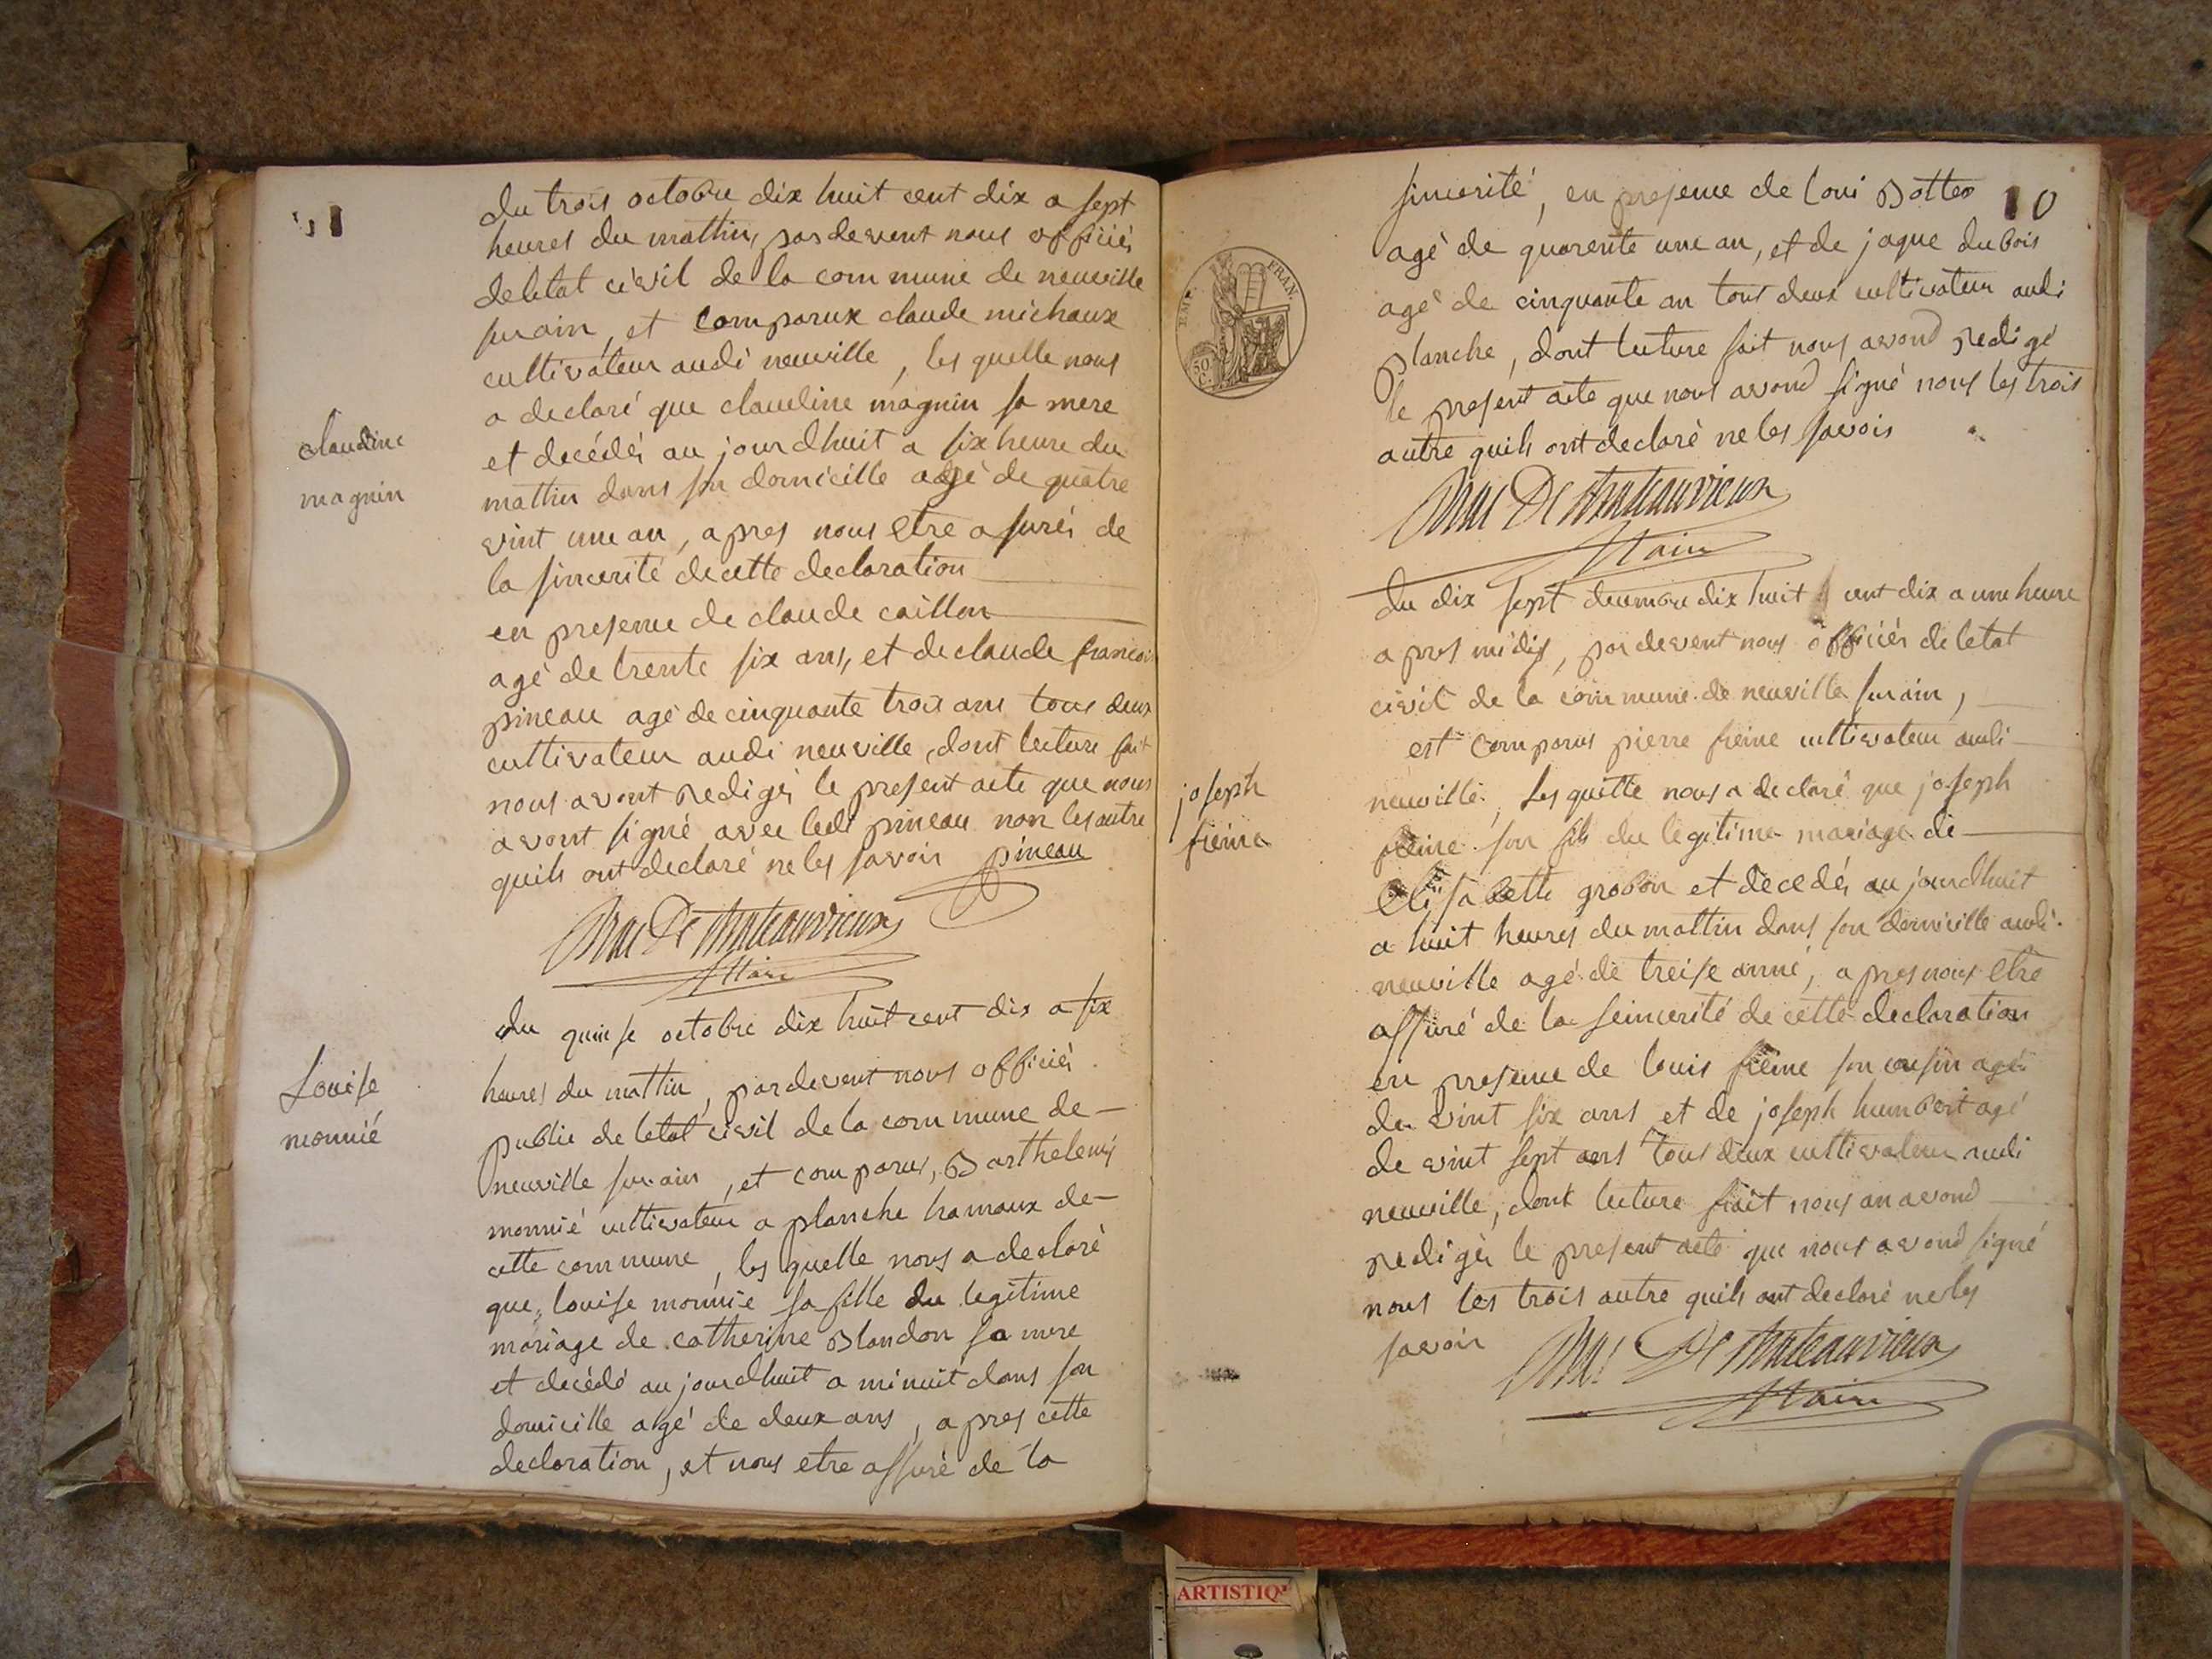 du trois octobre dix huit cent dix a sept
heures du mattin, pardevent nous officiés
deletat civil de la commune de neuville
surain, et comparux claude michaux
cultivateur audi neuville, les quelle nous
a declaré que claudine magnin sa mere
et decédés au jourdhuit a six heure du
claudine
magnin
mattin dans son domicille agé de quatre
vint une an, apres nous etre asurés de
la sincerité decette declaration
en presence de claude caillon
agé de trente six ans, et declaude francois
pineau agé de cinquante trois ans tous deux
cultivateur audi neuville, dont lecture fait
nous avont redigés le present acte que nous
avont signé avec ledi pineau non les autre
quils ont declaré ne les savoir pineau
De Chateauvieux
Maire
du quinse octobre dix huit cent dix a six
Louise
monnié
heures du mattin, pardevent nous officiés
public de letat civil de la commune de
neuville surain, et comparus, Barthelemy
monnié cultivateur a planche hamaux de
cette commune, les quelle nous a declaré
que, louise monnié sa fille du legitime
mariage de catherine Blandon sa mere
et decédé au jourdhuit a minuit dans son
domicille agé de deux ans, apres cette
declaration, et nous etre assuré de la
10
sincerité, en presence de loui Bottex
agé de quarente une an, et de jaque dubois
agé de cinquante an tous deux cultivateur audi
planche, dont lecture fait nous avond redigé
le present acte que nous avond signé nous les trois
autre quils ont declaré ne les savois
De Chateauvieux
Maire
EMP. FRAN.
50 C.
du dix sept decembre dix huit cent dix a une heure
apres midis, pardevent nous officiés de letat
civil de la commune de neuville surain,
est comparus pierre freine cultivateur audi
joseph
freine
neuville, les quelle nous a declaré que joseph
freine son fils du legitime mariage de
Elisabette grobon et decedés au jourdhuit
a huit heures du mattin dans son domicille audi
neuville agé de treise anné, apres nous etre
assuré de la seincerité de cette declaration
en presence de louis freine son cousin agé
de vint six ans et de joseph humbert agé
de vint sept ans tous deux cultivateur audi
neuville, dont lecture fait nous an avond
redigés le present acte que nous avond signé
nous les trois autre quils ont declaré ne les
savoir
De Chateauvieux
Maire
ARTISTIQ